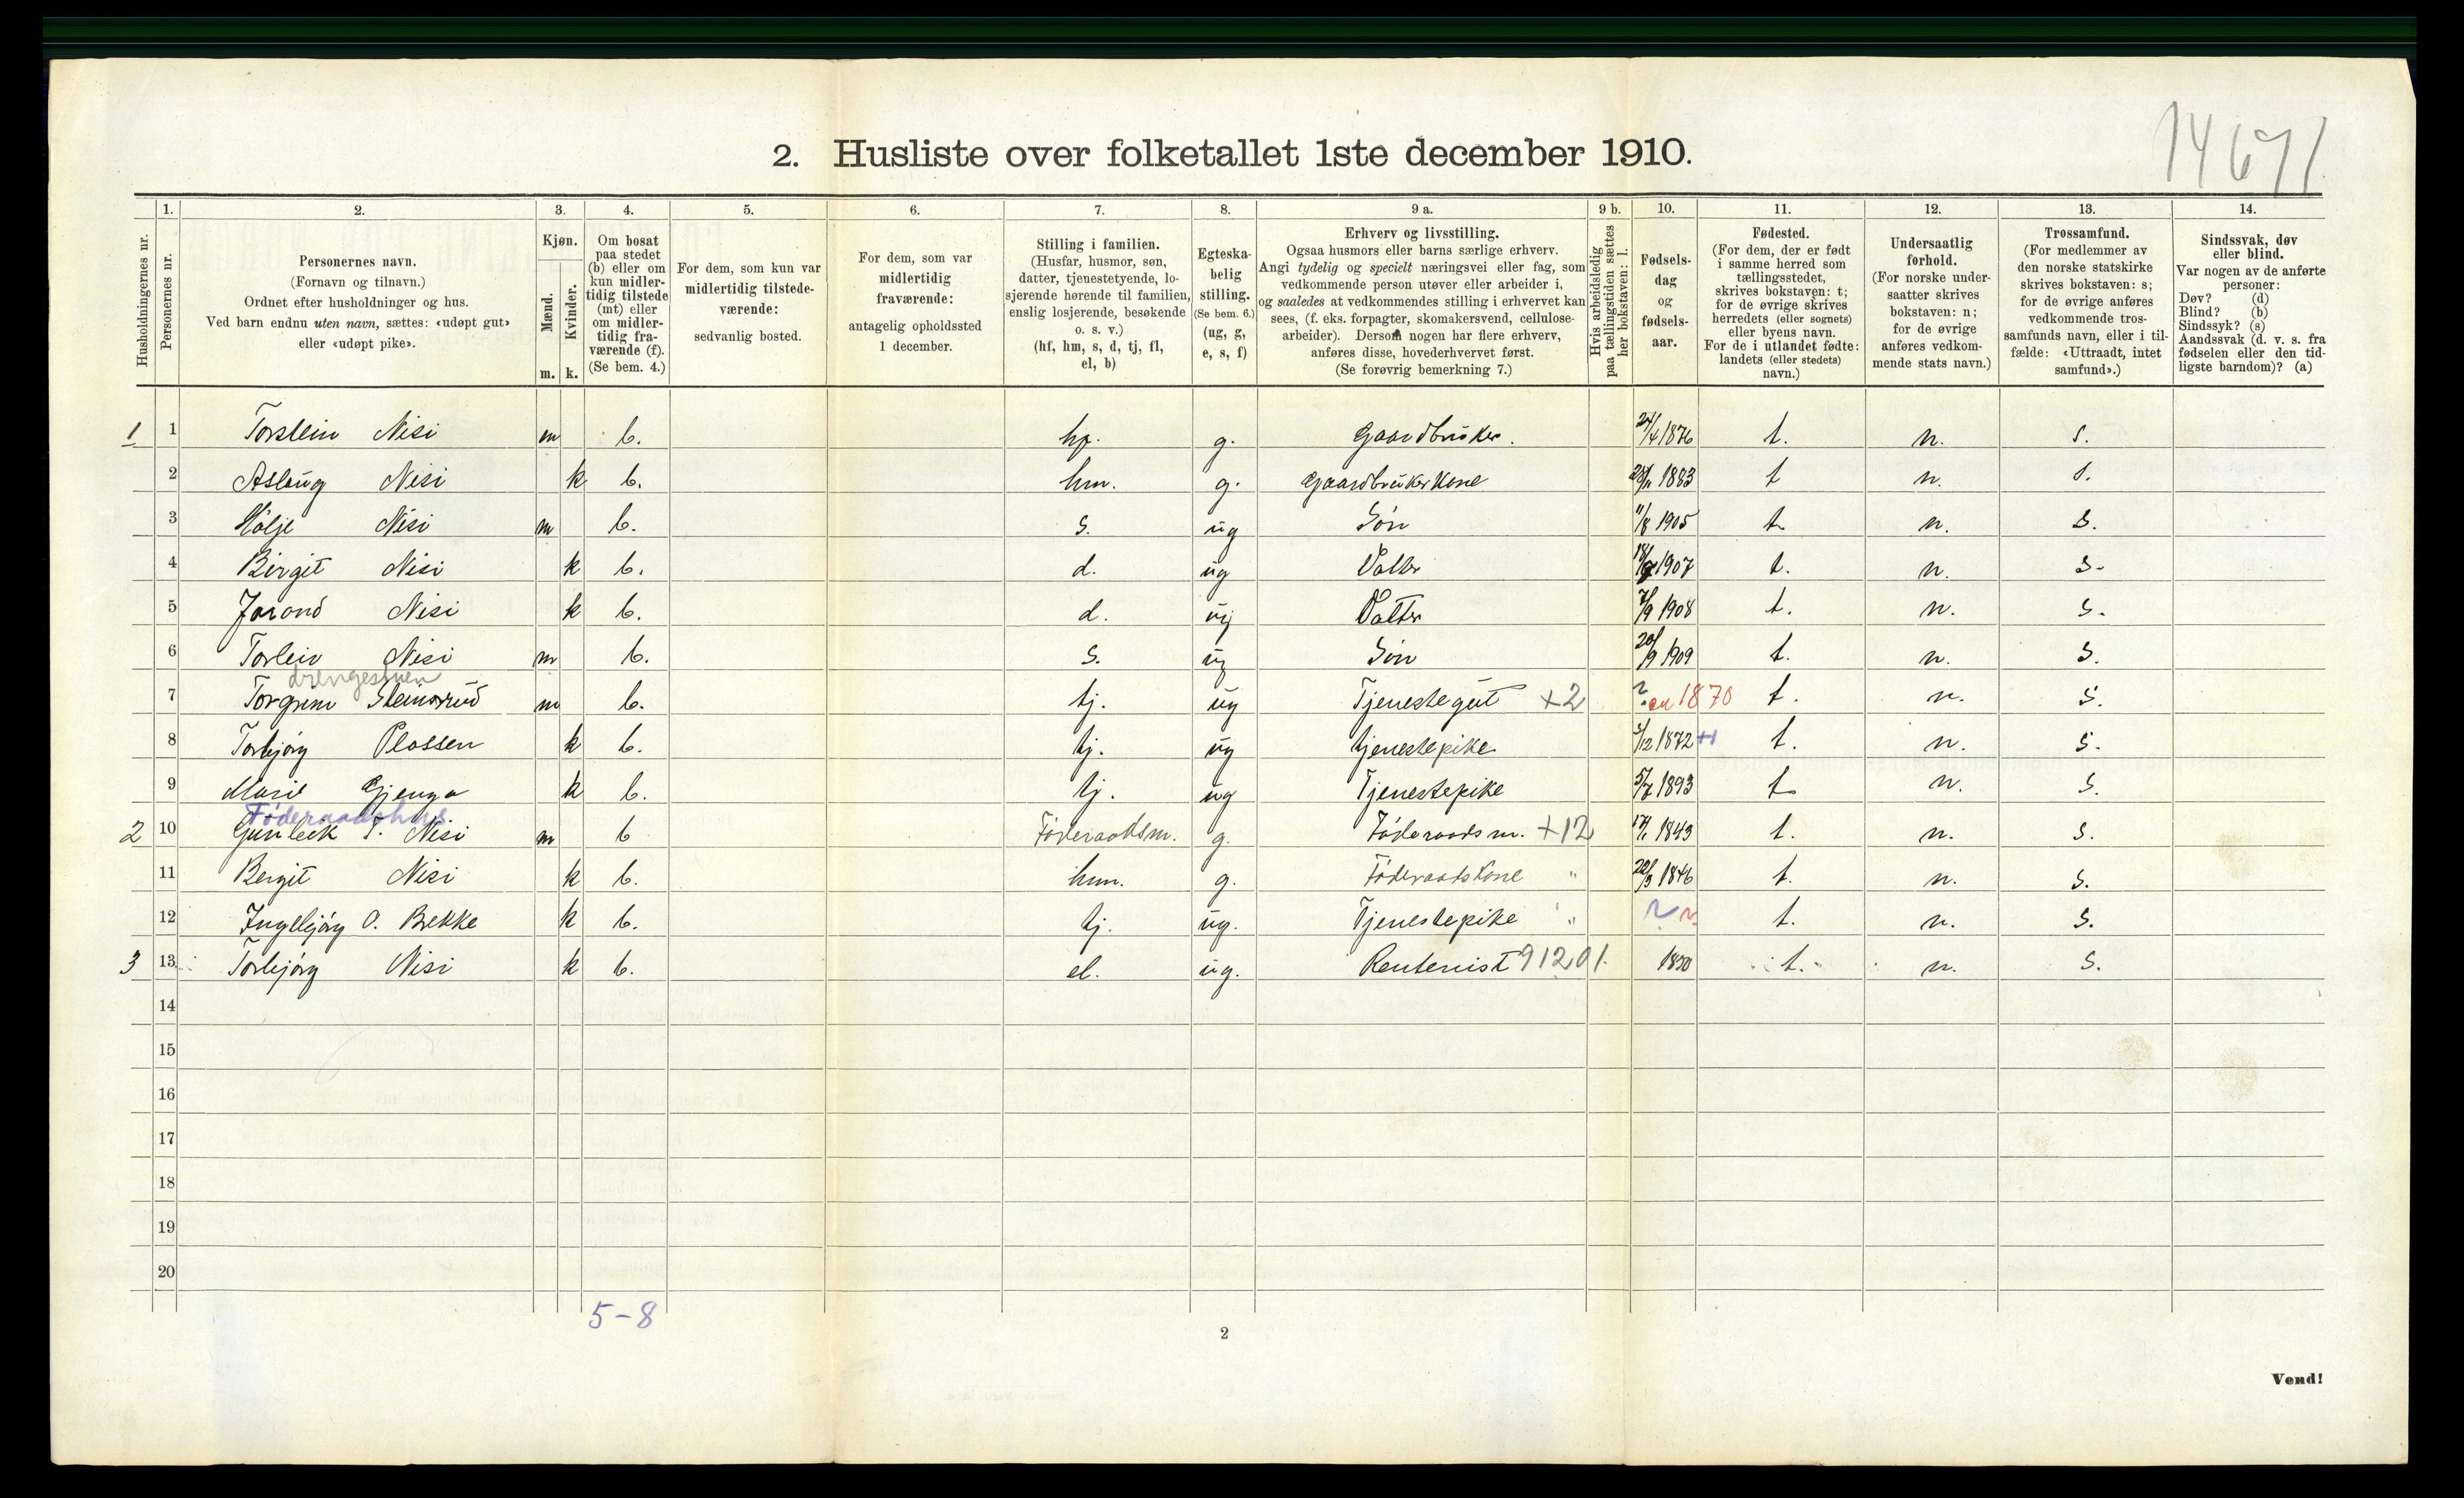 14671
2. Husliste over folketallet 1ste december 1910.
Husholdningernes nr.
1.
Personernes nr.
2.
Personernes navn.
(Fornavn og tilnavn.)
Ordnet efter husholdninger og hus.
Ved barn endnu uten navn, sættes: «udøpt gut»
eller «udøpt pike».
3.
Kjøn.
Mænd.
Kvinder.
m. k.
4.
Om bosat
paa stedet
(b) eller om
kun midler-
tidig tilstede
(mt) eller
om midler-
tidig fra-
værende (f).
(Se bem. 4.)
5.
For dem, som kun var
midlertidig tilstede-
værende:
sedvanlig bosted.
6.
For dem, som var
midlertidig
fraværende:
antagelig opholdssted
1 december.
7.
Stilling i familien.
(Husfar, husmor, søn,
datter, tjenestetyende, lo-
sjerende hørende til familien,
enslig losjerende, besøkende
o. s. v.)
(hf, hm, s, d, tj, fl,
el, b)
8.
Egteska-
belig
stilling.
(Se bem. 6.)
(ug, g,
e, s, f)
9 a.
Erhverv og livsstilling.
Ogsaa husmors eller barns særlige erhverv.
Angi tydelig og specielt næringsvei eller fag, som
vedkommende person utøver eller arbeider i,
og saaledes at vedkommendes stilling i erhvervet kan
sees, (f. eks. forpagter, skomakersvend, cellulose-
arbeider). Dersom nogen har flere erhverv,
anføres disse, hovederhvervet først.
(Se forøvrig bemerkning 7.)
9 b.
Hvis arbeidsledig
paa tællingstiden sættes
her bokstaven: l.
10.
Fødsels-
dag
og
fødsels-
aar.
11.
Fødested.
(For dem, der er født
i samme herred som
tællingsstedet,
skrives bokstaven: t;
for de øvrige skrives
herredets (eller sognets)
eller byens navn.
For de i utlandet fødte:
landets (eller stedets)
navn.)
12.
Undersaatlig
forhold.
(For norske under-
saatter skrives
bokstaven: n;
for de øvrige
anføres vedkom-
mende stats navn.)
13.
Trossamfund.
(For medlemmer av
den norske statskirke
skrives bokstaven: s;
for de øvrige anføres
vedkommende tros-
samfunds navn, eller i til-
fælde: «Uttraadt, intet
samfund».)
14.
Sindssvak, døv
eller blind.
Var nogen av de anførte
personer:
Døv? (d)
Blind? (b)
Sindssyk? (s)
Aandssvak (d. v. s. fra
fødselen eller den tid-
ligste barndom)? (a)
1 1 Torstein Nisi m b. hf. g. Gaardbruker. 24/4 1876 t. n. s.
2 Aslaug Nisi k b. hm. g. Gaardbrukerkone 1883 t n. s.
3 Holje Nisi m b. s. ug Søn 11/8 1905 t. n. s.
4 Birgit Nisi k b. d. ug Datter 1907 t. n. s.
5 Jorond Nisi k b. d. ug Datter 7/9 1908 t. n. s.
6 Torleiv Nisi m b. s. ug Søn 20/9 1909 t. n. s.
drengestuen
7 Torgrim Steinsrud m b. tj. ug Tjenestegut +2 ? ca 1870 t. n. s.
8 Torbjørg Plassen k b. tj. ug tjenestepike 3/12 1872 t. n. s.
9 Marie Gjenga k b. tj. ug Tjenestepike 5/7 1893 t n. s.
Föderaadshus
2 10 Gunleik T. Nisi m b Föderaadsm. g. Föderaadsm. +12 1843 t. n. s.
11 Bergit Nisi k b. hm. g. Föderaadskone " 22/3 1846 t. n. s.
12 Ingebjørg O. Bekke k b. tj. ug. Tjenestepike " ? ? t. n. s.
3 13 Torbjørg Nisi k b. el. ug. Rentenist 91201. 1830 t. n. s.
14
15
16
17
18
19
20
5-8
2
Vend!